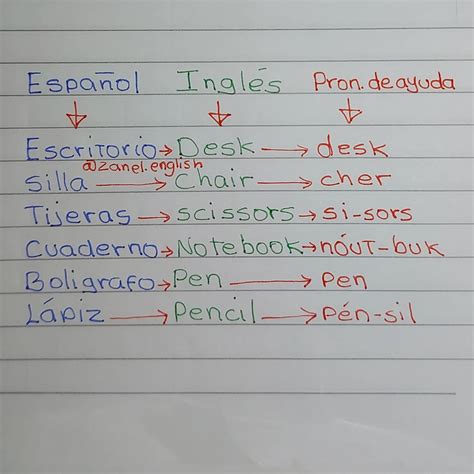 Español Inglés Pron. de ayuda
Escritorio → Desk → desk
@zanel.english
Silla → Chair → cher
Tijeras → scissors → si-sors
Cuaderno → Notebook → nóut-buk
Boligrafo → Pen → pen
Lápiz → Pencil → pén-sil